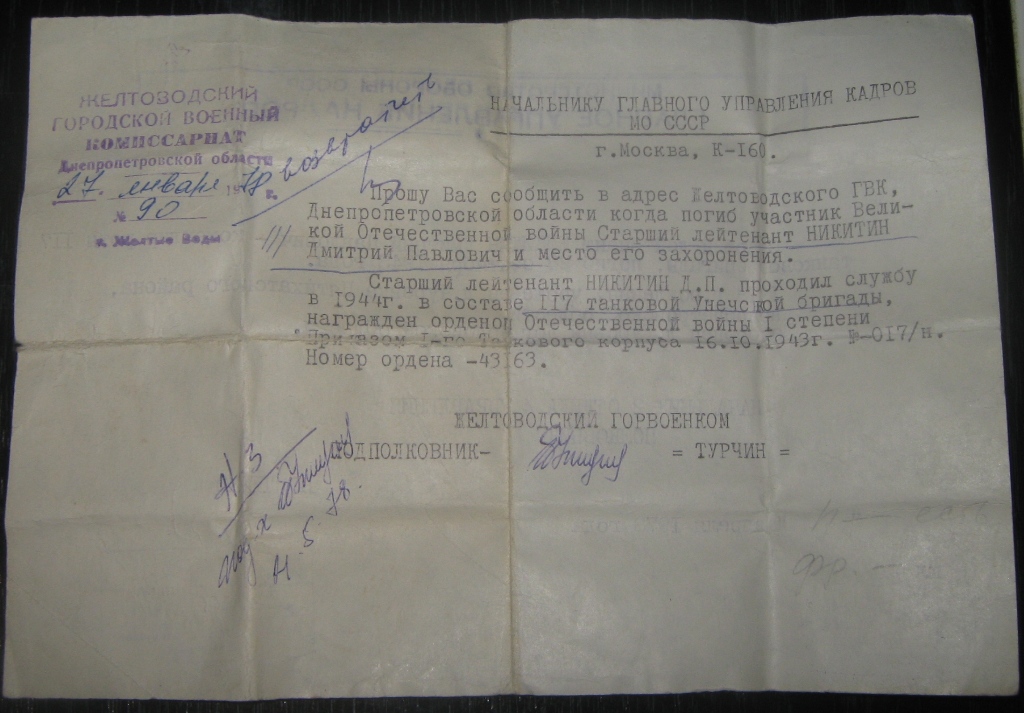 ЖЕЛТОВОДСКИЙ
ГОРОДСКОЙ ВОЕННЫЙ
КОМИССАРИАТ
Днепропетровской области
27. января 1978 г.
№ 90
г. Желтые Воды
возвратить
НАЧАЛЬНИКУ ГЛАВНОГО УПРАВЛЕНИЯ КАДРОВ
МО СССР
г.Москва, К-160.
Прошу Вас сообщить в адрес Желтоводского ГВК,
Днепропетровской области когда погиб участник Вели-
кой Отечественной войны Старший лейтенант НИКИТИН
Дмитрий Павлович и место его захоронения.
Старший лейтенант НИКИТИН Д.П. проходил службу
в 1944г. в составе 117 танковой Унечской бригады,
награжден орденом Отечественной войны I степени
Приказом I-го Танкового корпуса 16.10.1943г. №-017/н.
Номер ордена -43163.
ЖЕЛТОВОДСКИЙ ГОРВОЕНКОМ
ПОДПОЛКОВНИК-
= ТУРЧИН =